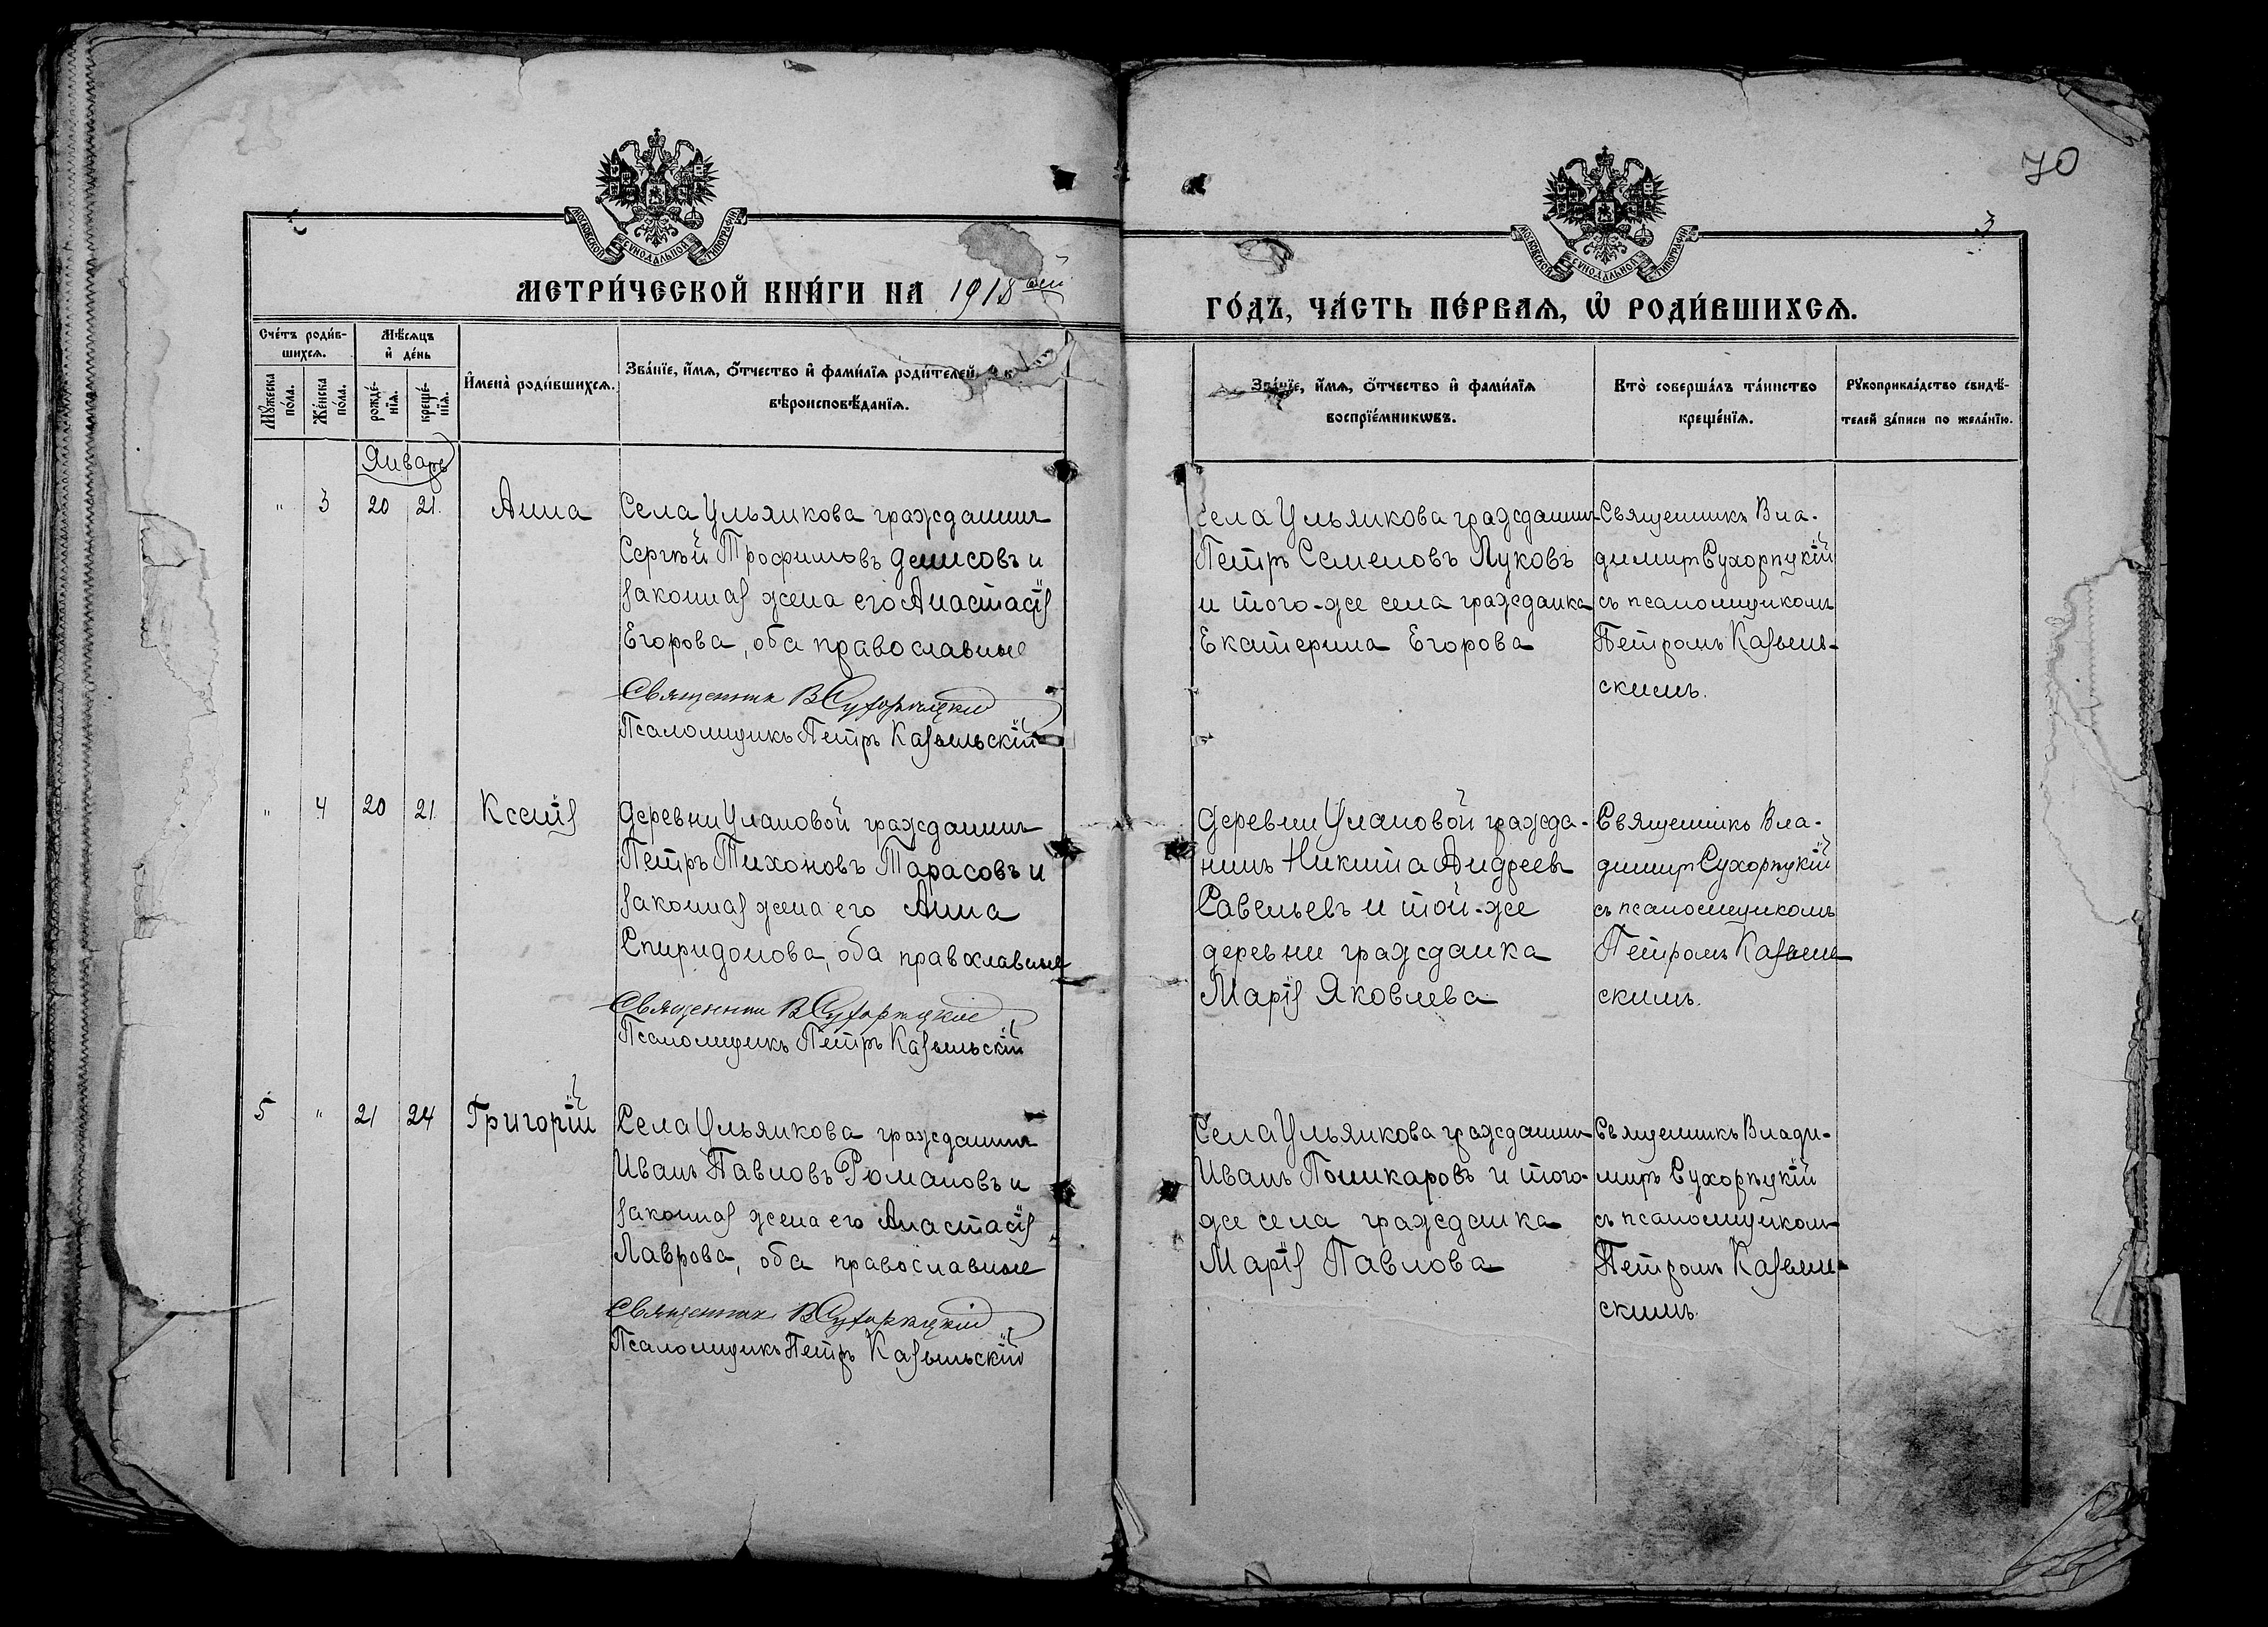 70
3
МОСКОВСКОЙ СѴНОДАЛЬНОЙ ТИПОГРАФІИ
МОСКОВСКОЙ СѴНОДАЛЬНОЙ ТИПОГРАФІИ
МЕТРИ́ЧЕСКОЙ КНИ́ГИ НА 1918 ый
ГО́ДЪ, ЧА́СТЬ ПЕ́РВАѦ, Ѡ҆ РОДИ́ВШИХСѦ.
Сче́тъ роди́в-
шихсѧ.
Мѣ́сѧцъ
и҆ де́нь
Мꙋ́жеска по́ла.
Же́нска по́ла.
рожде́-нїѧ.
креще́-нїѧ.
И҆мена̀ роди́вшихсѧ.
Зва́нїе, и҆́мѧ, ѻ҆́тчество и҆ фами́лїѧ роди́телей, и к
вѣроисповѣ́данїѧ.
Зва́нїе, и҆́мѧ, ѻ҆́тчество и҆ фами́лїѧ
воспрїе́мникѡвъ.
Кто̀ соверша́лъ та́инство
креще́нїѧ.
Рꙋкоприкла́дство свидѣ́-
телей за́писи по жела́нїю.
Январь
" 3 20 21. Анна
Села Ульянкова гражданинъ
Сергѣй Трофимовъ Денисовъ и
законная жена его Анастасія
Егорова, оба православные
Священник В Сухорѣцкий
Псаломщикъ Петръ Казыльскій
Села Ульянкова гражданинъ
Петръ Семеновъ Луковъ
и того-же села гражданка
Екатерина Егорова
Священникъ Вла-
димиръ Сухорѣцкій
съ псаломщикомъ
Петромъ Казыль-
скимъ.
" 4 20 21. Ксенія
Деревни Улановой гражданинъ
Петръ Тихоновъ Тарасовъ и
законная жена его Анна
Спиридонова, оба православные
Священник В Сухорѣцкий
Псаломщикъ Петръ Казыльскій
Деревни Улановой гражда-
нинъ Никита Андреевъ
Савельевъ и той-же
деревни гражданка
Марія Яковлева
Священникъ Вла-
димиръ Сухорѣцкій
съ псаломщикомъ
Петромъ Казыль-
скимъ.
5 " 21 24 Григорій
Села Ульянкова гражданинъ
Иванъ Павловъ Романовъ и
законная жена его Анастасія
Лаврова, оба православные
Священник В Сухорѣцкій
Псаломщикъ Петръ Казыльскій
Села Ульянкова гражданинъ
Иванъ Пошкаровъ и того-
же села гражданка
Марія Павлова
Священникъ Влади-
миръ Сухорѣцкій
съ псаломщикомъ
Петромъ Казыль-
скимъ.